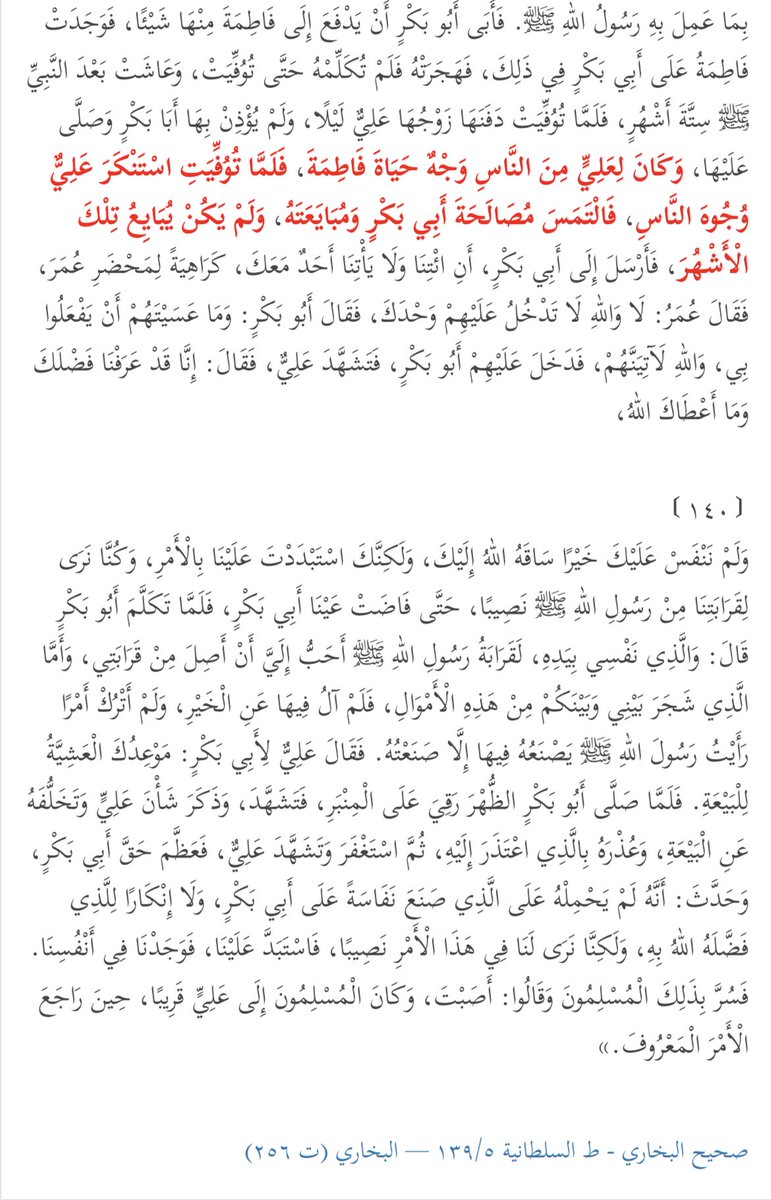 بِمَا عَمِلَ بِهِ رَسُولُ اللهِ ﷺ. فَأَبَى أَبُو بَكْرٍ أَنْ يَدْفَعَ إِلَى فَاطِمَةَ مِنْهَا شَيْئًا، فَوَجَدَتْ
فَاطِمَةُ عَلَى أَبِي بَكْرٍ فِي ذَلِكَ، فَهَجَرَتْهُ فَلَمْ تُكَلِّمْهُ حَتَّى تُوُفِّيَتْ، وَعَاشَتْ بَعْدَ النَّبِيِّ
ﷺ سِتَّةَ أَشْهُرٍ، فَلَمَّا تُوُفِّيَتْ دَفَنَهَا زَوْجُهَا عَلِيٌّ لَيْلًا، وَلَمْ يُؤْذِنْ بِهَا أَبَا بَكْرٍ وَصَلَّى
عَلَيْهَا، وَكَانَ لِعَلِيٍّ مِنَ النَّاسِ وَجْهٌ حَيَاةَ فَاطِمَةَ، فَلَمَّا تُوُفِّيَتِ اسْتَنْكَرَ عَلِيٌّ
وُجُوهَ النَّاسِ، فَالْتَمَسَ مُصَالَحَةَ أَبِي بَكْرٍ وَمُبَايَعَتَهُ، وَلَمْ يَكُنْ يُبَايِعُ تِلْكَ
الْأَشْهُرَ، فَأَرْسَلَ إِلَى أَبِي بَكْرٍ، أَنِ ائْتِنَا وَلَا يَأْتِنَا أَحَدٌ مَعَكَ، كَرَاهِيَةً لِمَحْضَرِ عُمَرَ،
فَقَالَ عُمَرُ: لَا وَاللهِ لَا تَدْخُلُ عَلَيْهِمْ وَحْدَكَ، فَقَالَ أَبُو بَكْرٍ: وَمَا عَسَيْتَهُمْ أَنْ يَفْعَلُوا
بِي، وَاللهِ لَآتِيَنَّهُمْ، فَدَخَلَ عَلَيْهِمْ أَبُو بَكْرٍ، فَتَشَهَّدَ عَلِيٌّ، فَقَالَ: إِنَّا قَدْ عَرَفْنَا فَضْلَكَ
وَمَا أَعْطَاكَ اللهُ،
(١٤٠)
وَلَمْ نَنْفَسْ عَلَيْكَ خَيْرًا سَاقَهُ اللهُ إِلَيْكَ، وَلَكِنَّكَ اسْتَبْدَدْتَ عَلَيْنَا بِالْأَمْرِ، وَكُنَّا نَرَى
لِقَرَابَتِنَا مِنْ رَسُولِ اللهِ ﷺ نَصِيبًا، حَتَّى فَاضَتْ عَيْنَا أَبِي بَكْرٍ، فَلَمَّا تَكَلَّمَ أَبُو بَكْرٍ
قَالَ: وَالَّذِي نَفْسِي بِيَدِهِ، لَقَرَابَةُ رَسُولِ اللهِ ﷺ أَحَبُّ إِلَيَّ أَنْ أَصِلَ مِنْ قَرَابَتِي، وَأَمَّا
الَّذِي شَجَرَ بَيْنِي وَبَيْنَكُمْ مِنْ هَذِهِ الْأَمْوَالِ، فَلَمْ آلُ فِيهَا عَنِ الْخَيْرِ، وَلَمْ أَتْرُكْ أَمْرًا
رَأَيْتُ رَسُولَ اللهِ ﷺ يَصْنَعُهُ فِيهَا إِلَّا صَنَعْتُهُ. فَقَالَ عَلِيٌّ لِأَبِي بَكْرٍ: مَوْعِدُكَ الْعَشِيَّةُ
لِلْبَيْعَةِ. فَلَمَّا صَلَّى أَبُو بَكْرٍ الظُّهْرَ رَقِيَ عَلَى الْمِنْبَرِ، فَتَشَهَّدَ، وَذَكَرَ شَأْنَ عَلِيٍّ وَتَخَلُّفَهُ
عَنِ الْبَيْعَةِ، وَعُذْرَهُ بِالَّذِي اعْتَذَرَ إِلَيْهِ، ثُمَّ اسْتَغْفَرَ وَتَشَهَّدَ عَلِيٌّ، فَعَظَّمَ حَقَّ أَبِي بَكْرٍ،
وَحَدَّثَ: أَنَّهُ لَمْ يَحْمِلْهُ عَلَى الَّذِي صَنَعَ نَفَاسَةً عَلَى أَبِي بَكْرٍ، وَلَا إِنْكَارًا لِلَّذِي
فَضَّلَهُ اللهُ بِهِ، وَلَكِنَّا نَرَى لَنَا فِي هَذَا الْأَمْرِ نَصِيبًا، فَاسْتَبَدَّ عَلَيْنَا، فَوَجَدْنَا فِي أَنْفُسِنَا.
فَسُرَّ بِذَلِكَ الْمُسْلِمُونَ وَقَالُوا: أَصَبْتَ، وَكَانَ الْمُسْلِمُونَ إِلَى عَلِيٍّ قَرِيبًا، حِينَ رَاجَعَ
الْأَمْرَ الْمَعْرُوفَ.»
صحيح البخاري - ط السلطانية ١٣٩/٥ — البخاري (ت ٢٥٦)